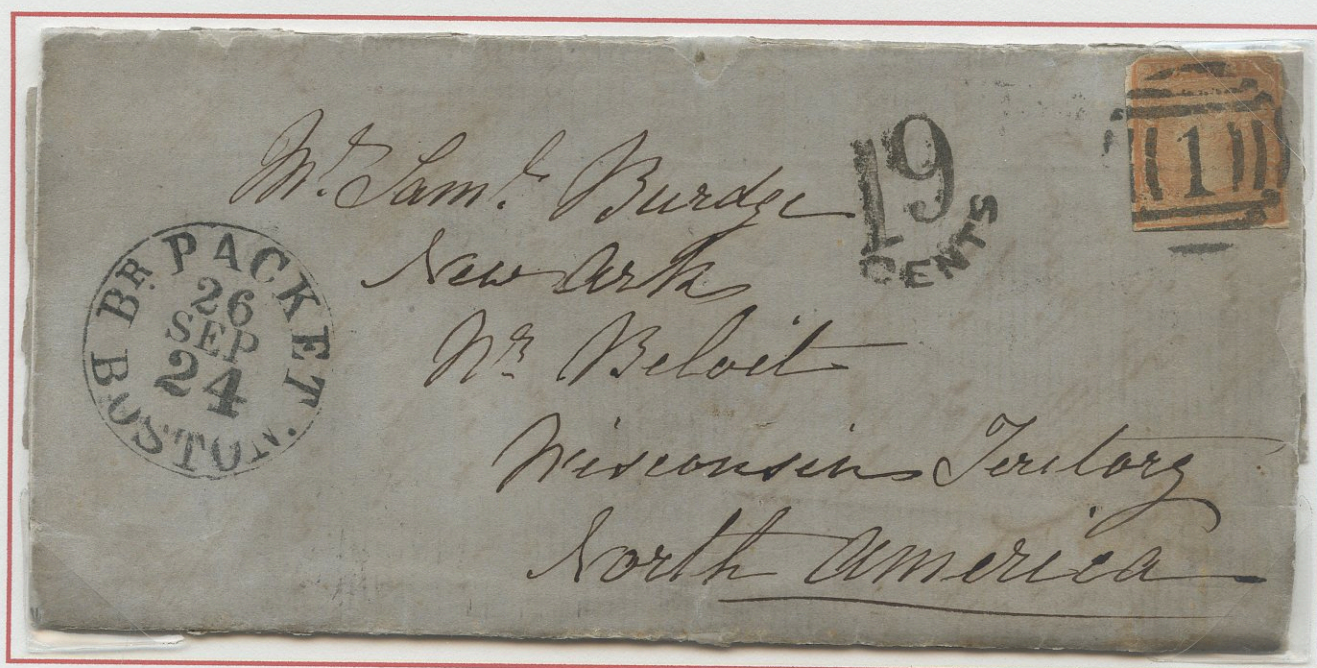 Mr. Saml. Burdge
New Ark
Nr. Beloit
Wisconsin Teritory
North America
BR. PACKET
26
SEP
24
BOSTON.
19
CENTS
1